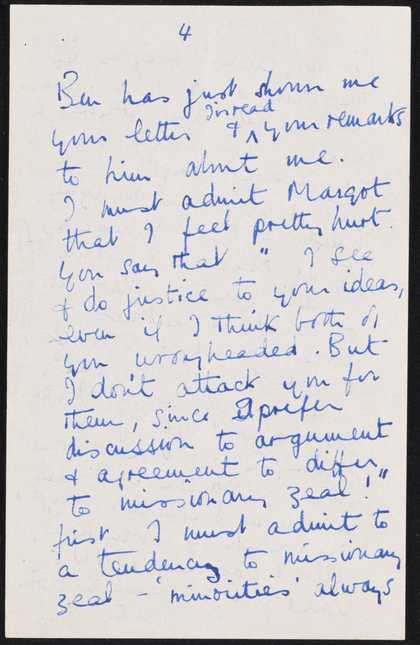 4
Ben has just shown me
your letter & I've read your remarks
to him about me.
I must admit Margot
that I feel pretty hurt.
You say that " I see
& do justice to your ideas,
even if I think both of
you wrongheaded. But
I don't attack you for
them, since I prefer
discussion to argument
& agreement to differ
to missionary zeal!"
first I must admit to
a tendency to missionary
zeal - 'minorities' always